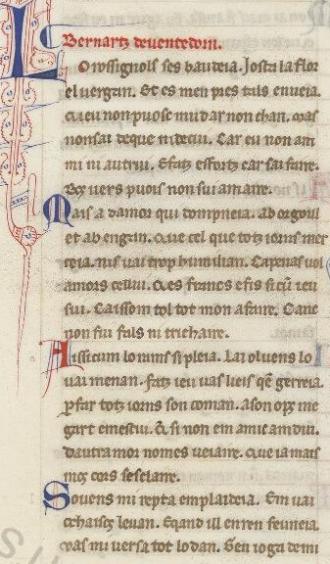 Bernartz deuentedorn.
LO rossignols ses baudeia. Josta la flor
el uergan. Et es men pres tals enueia.
Queu non puosc mudar non chan. Mas
non sai de que ni de cui. Car eu non am
mi ni autrui. E fatz esfortz car sai faire.
Bos uers puois non sui amaire.
Mais a damor qui dompneia. Ab orgoill
et ab engan. Que cel que totz iorns mer
ceia. nis uai trop humilian. Capenas uol
amors cellui. Qes francs e fis si cum ieu
sui. Caissom tol tot mon afaire. Cane
non fui fals ni trichaire.
Aissi cum lo rams si pleia. Lai o luens lo
uai menan. Fatz ieu uas lieis qem gerreia.
per far totz iorns son coman. A son ops me
gart em estui. Et si non em amic amdui.
dautramor nomes ueiaire. Que ia mais
mos cors sesclaire.
Souens mi repta em plaideia. Em uai
ochaisos leuan. E qand ill en ren feuneia.
uas mi uersa tot lo dan. Gen ioga de mi